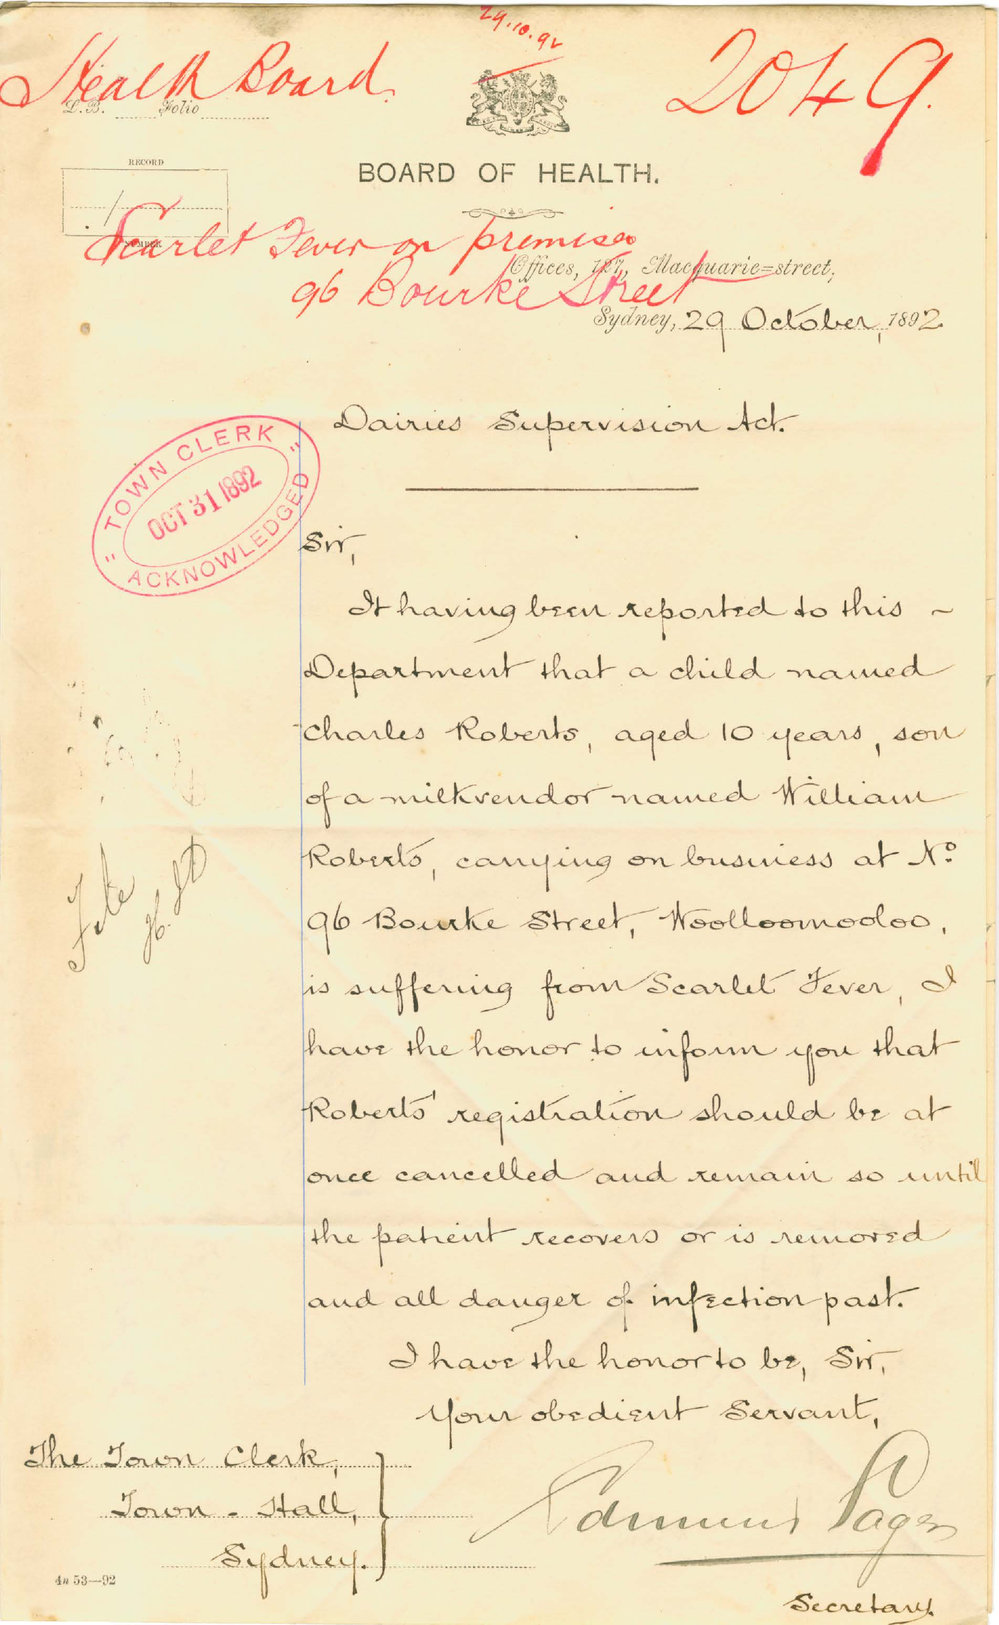 29.10.92
Health Board.
2049.
L.B. Folio
RECORD
NUMBER
BOARD OF HEALTH.
Scarlet Fever on premises
96 Bourke Street
Offices, 127, Macquarie=street,
Sydney, 29 October, 1892
Dairies Supervision Act.
"TOWN CLERK"
OCT 31 1892
ACKNOWLEDGED
Sir,
It having been reported to this
Department that a child named
Charles Roberts, aged 10 years, son
of a milkvendor named William
Roberts, carrying on business at No.
96 Bourke Street, Woolloomooloo,
is suffering from Scarlet Fever, I
have the honor to inform you that
Roberts' registration should be at
once cancelled and remain so until
the patient recovers or is removed
and all danger of infection past.
I have the honor to be, Sir,
Your obedient Servant,
Edmund Sager
Secretary.
The Town Clerk,
Town-Hall,
Sydney.
4n 53—92